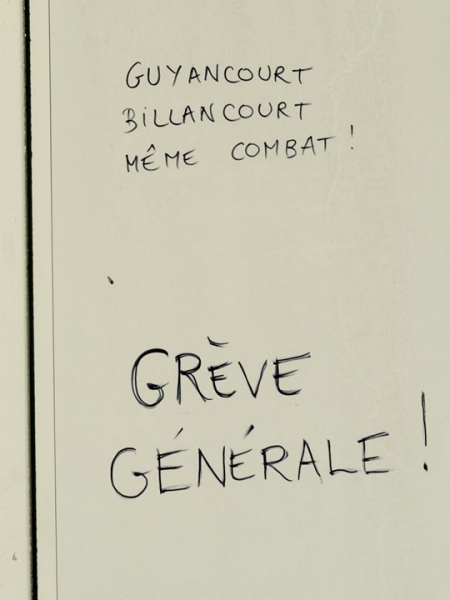 GUYANCOURT
BiLLANCOURT
MÊME COMBAT !
GRÈVE
GÉNÉRALE !